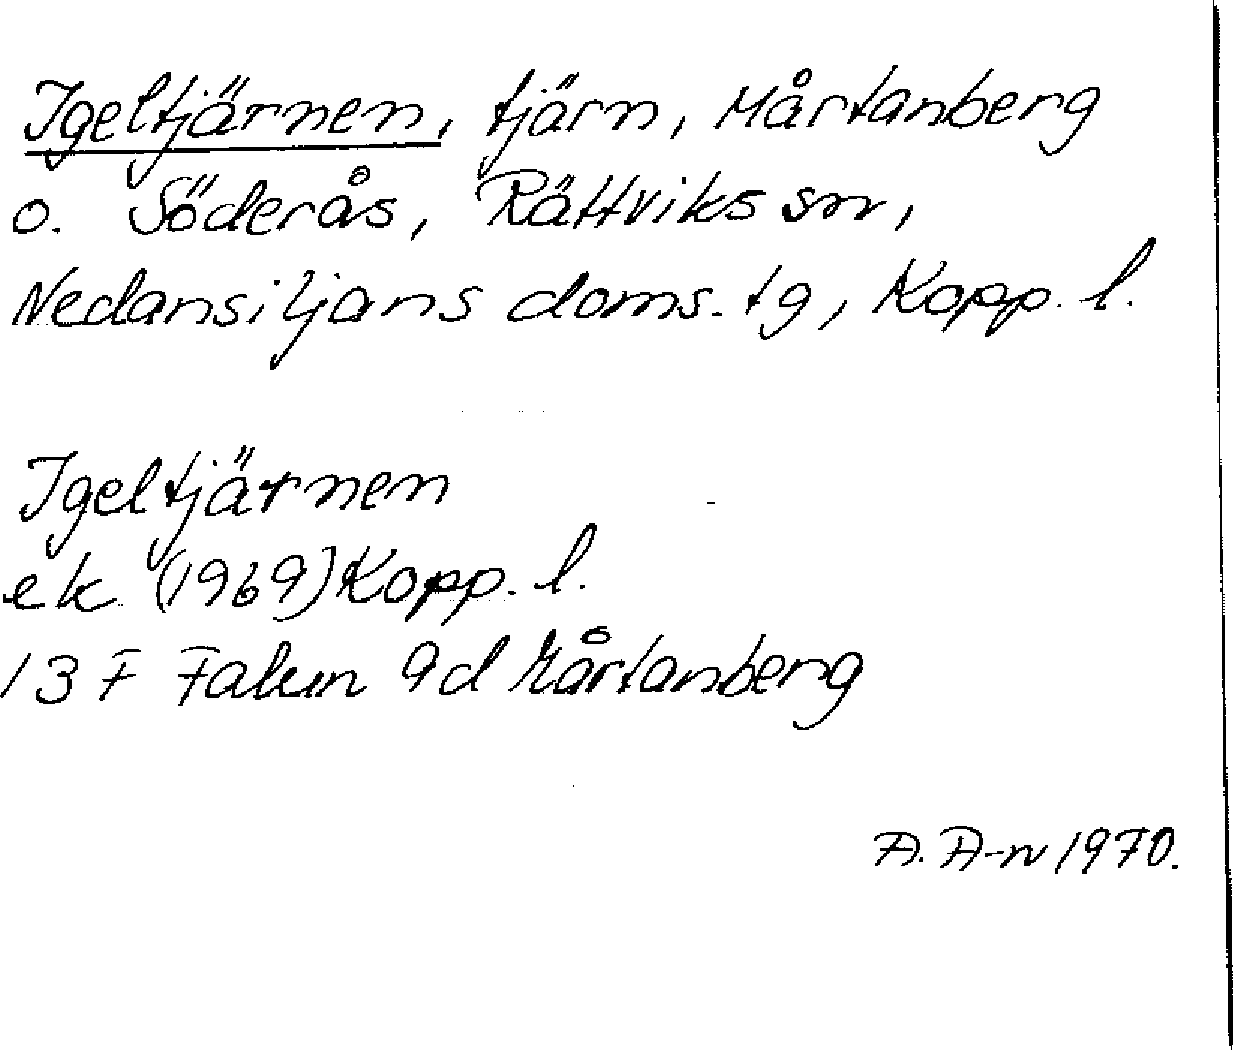 Igeltjärnen, tjärn, Mårtanberg
o. Söderås, Rättviks sn,
Nedansiljans doms. tg, Kopp. l.
Igeltjärnen
ek (1969) Kopp. l.
13 F Falun 9d Mårtanberg
A. A-n 1970.